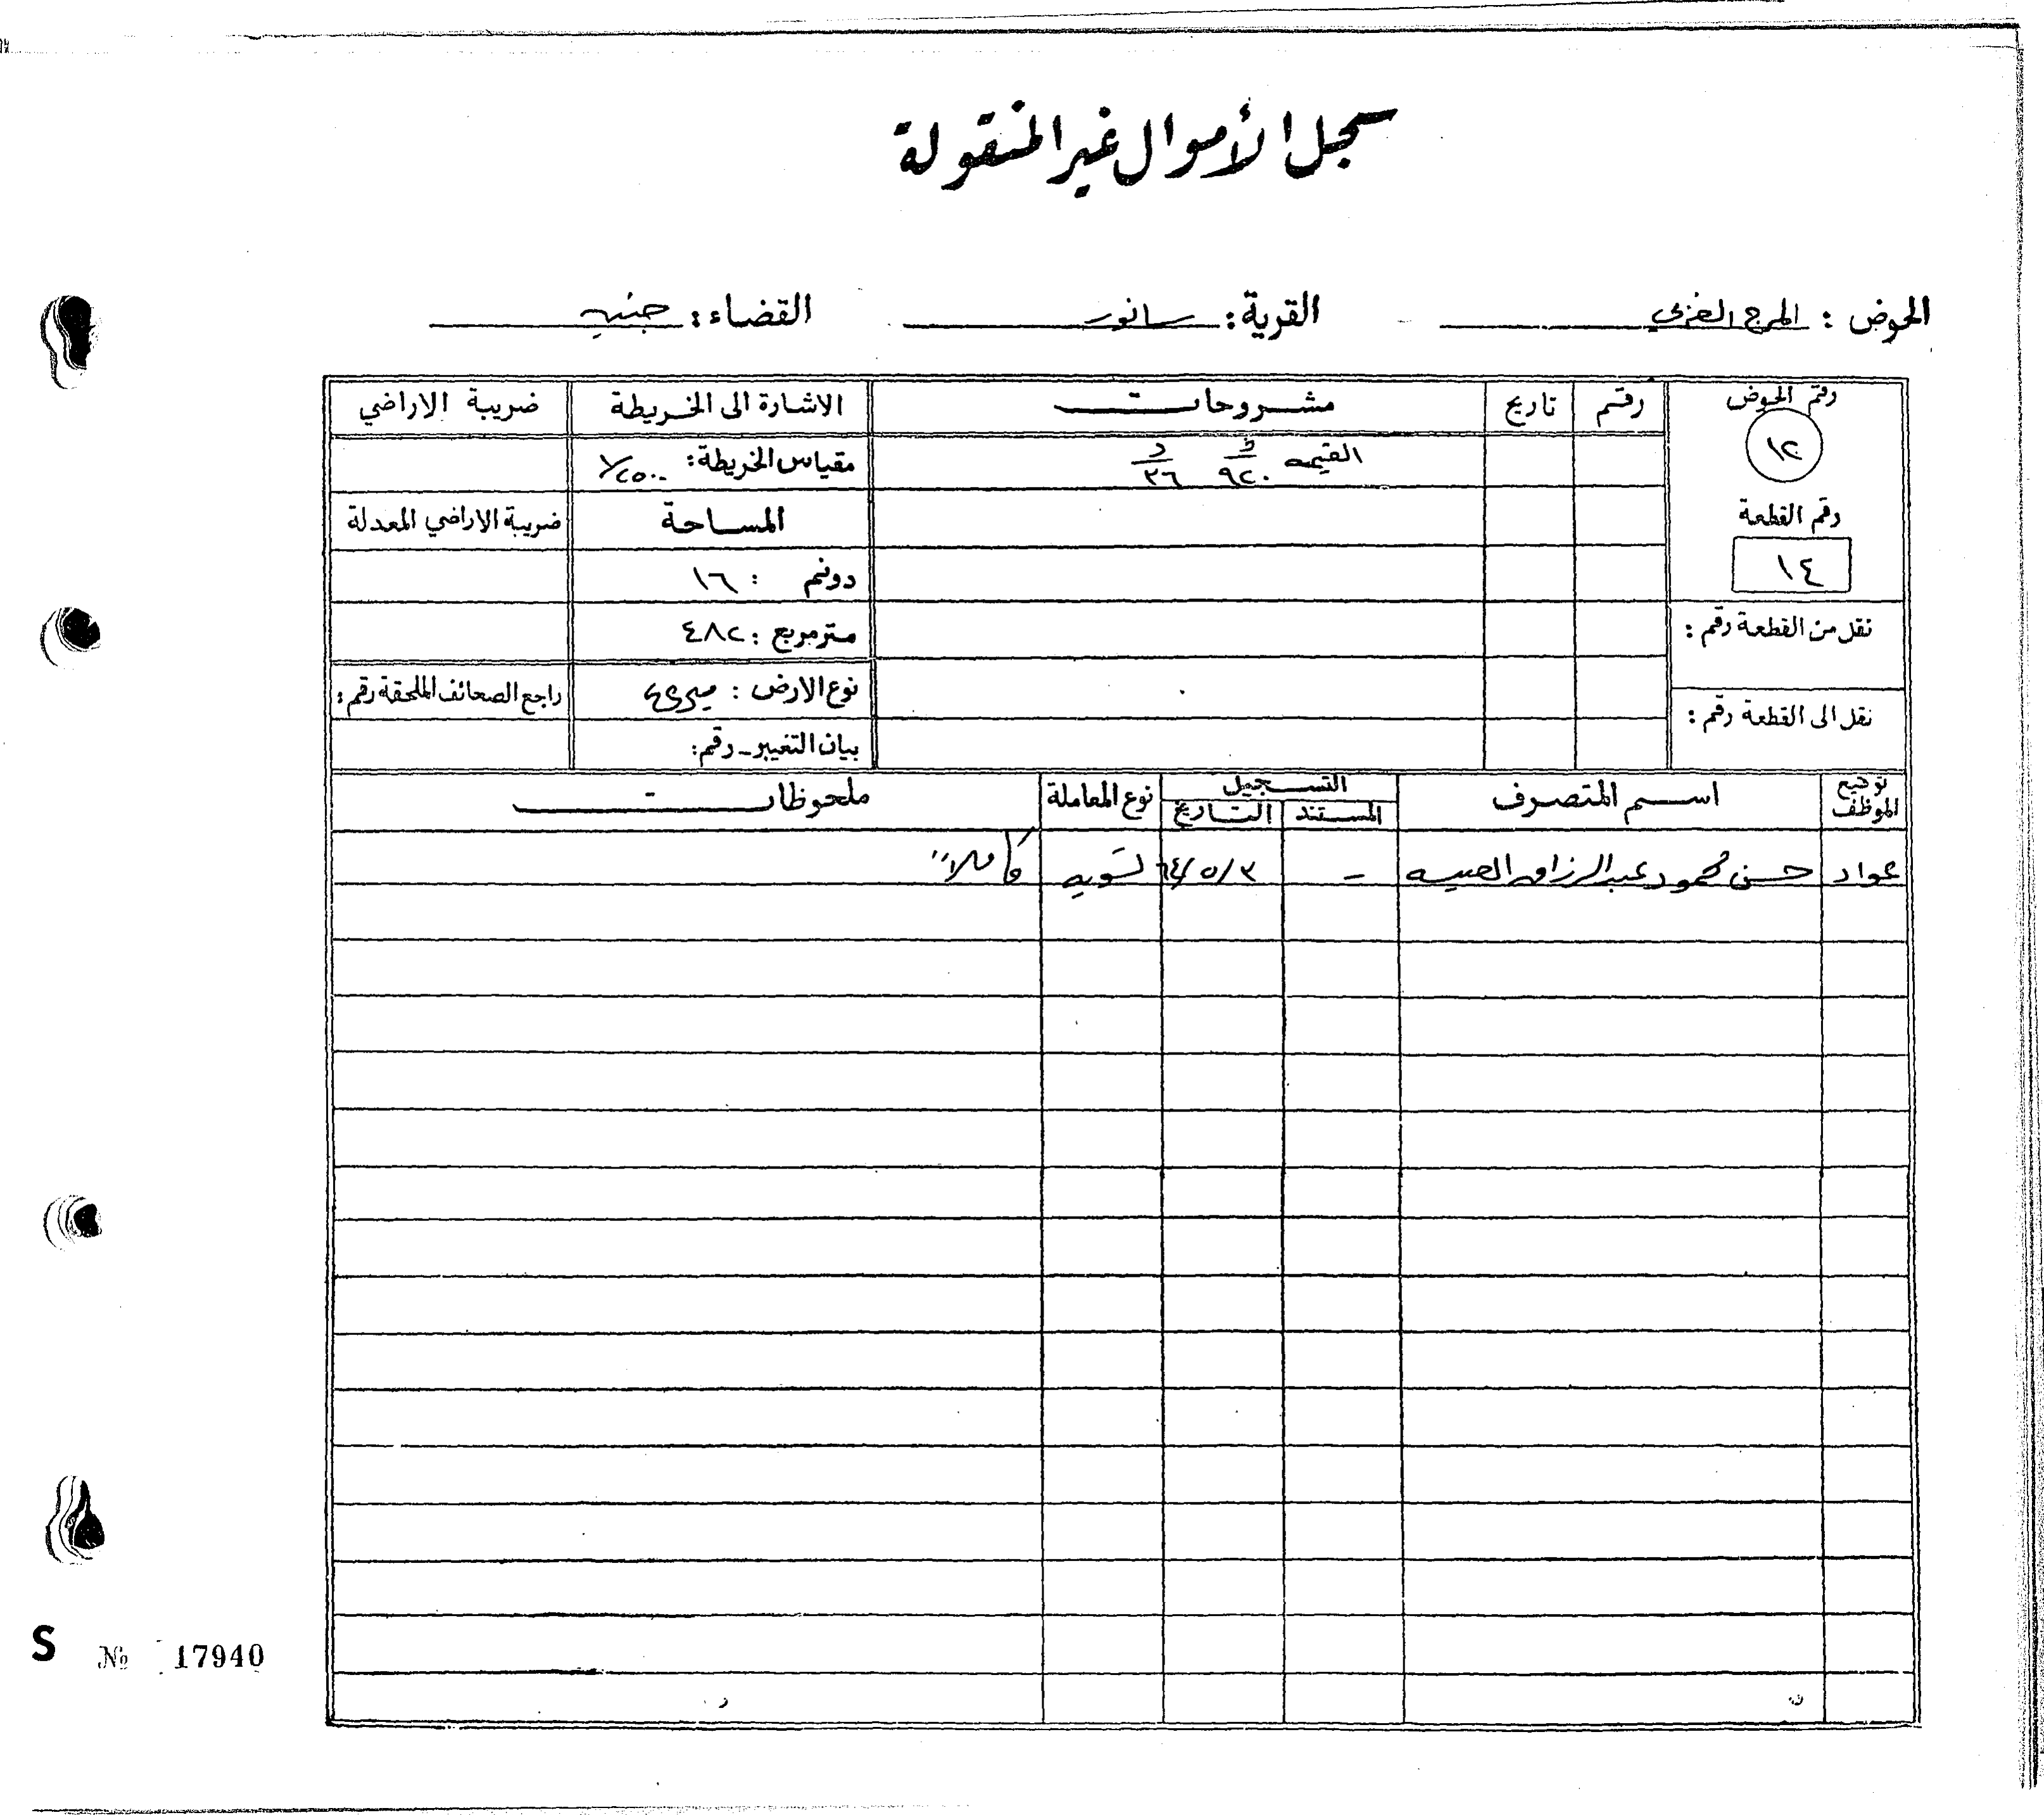 سجل الأموال غير المنقولة
الحوض : المرج الغربي القرية : سانور القضاء : جنين
رقم الحوض رقم تاريخ مشروحات الاشارة الى الخريطة ضريبة الاراضي
١٢ القيمه ف ٩٢٠ د ٣٦ مقياس الخريطة : ١/٢٥٠٠
رقم القطعة المساحة ضريبة الاراضي المعدلة
١٤ دونم : ١٦
نقل من القطعة رقم : متر مربع : ٤٨٢
نوع الارض : ميري راجع الصحائف الملحقة رقم :
نقل الى القطعة رقم : بيان التغيير - رقم :
توقيع الموظف اسم المتصرف التسجيل المستند التاريخ نوع المعاملة ملحوظات
عواد حسن محمود عبد الرزاق - ٦٤/٥/٣ تسويه كاملاً
S № 17940